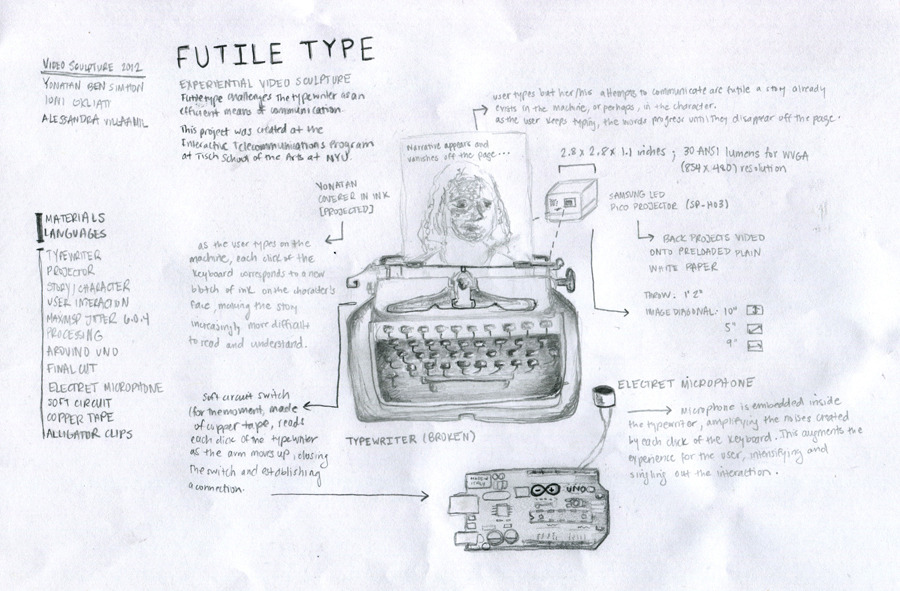 VIDEO SCULPTURE 2012
YONATAN BEN SIMHON
IONI
ALESSANDRA VILLAAMIL
FUTILE TYPE
EXPERIENTIAL VIDEO SCULPTURE
Futile type challenges the typewriter as an
efficient means of communication.
This project was created at the
Interactive Telecommunications Program
at Tisch School of the Arts at NYU.
user types but her/his attempts to communicate are futile a story already
exists in the machine, or perhaps, in the character.
as the user keeps typing, the words progress until they disappear off the page.
Narrative appears and
vanishes off the page...
2.8 x 2.8 x 1.1 inches ; 30 ANSI lumens for WVGA
(854 x 480) resolution
SAMSUNG LED
PICO PROJECTOR (SP-H03)
BACK PROJECTS VIDEO
ONTO PRELOADED PLAIN
WHITE PAPER
THROW: 1' 2"
IMAGE DIAGONAL: 10"
5"
9"
YONATAN
COVERED IN INK
[PROJECTED]
as the user types on the
machine, each click of the
keyboard corresponds to a new
blotch of ink on the character's
face, making the story
increasingly more difficult
to read and understand.
MATERIALS
LANGUAGES
TYPEWRITER
PROJECTOR
STORY/CHARACTER
USER INTERACTION
MAXMSP JITTER 6.0.4
PROCESSING
ARDUINO UNO
FINAL CUT
ELECTRET MICROPHONE
SOFT CIRCUIT
COPPER TAPE
ALLIGATOR CLIPS
Soft circuit switch
(for the moment, made
of copper tape, reads
each click of the typewriter
as the arm moves up, closing
the switch and establishing
a connection.
TYPEWRITER (BROKEN)
ELECTRET MICROPHONE
Microphone is embedded inside
the typewriter, amplifying the noises created
by each click of the keyboard. This augments the
experience for the user, intensifying and
singling out the interaction.
UNO